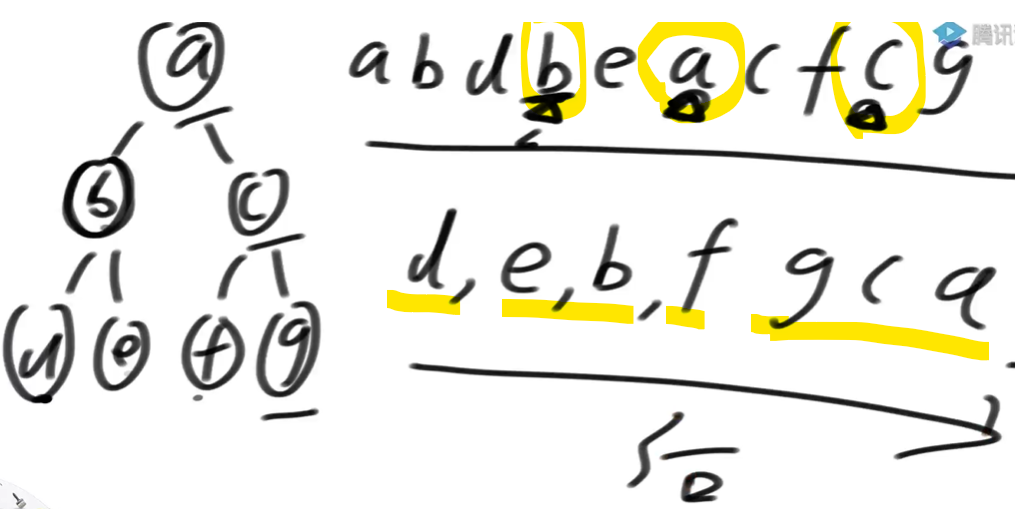 a
b c
d e f g
a b d b e a c f c g
d, e, b, f g c a
腾讯